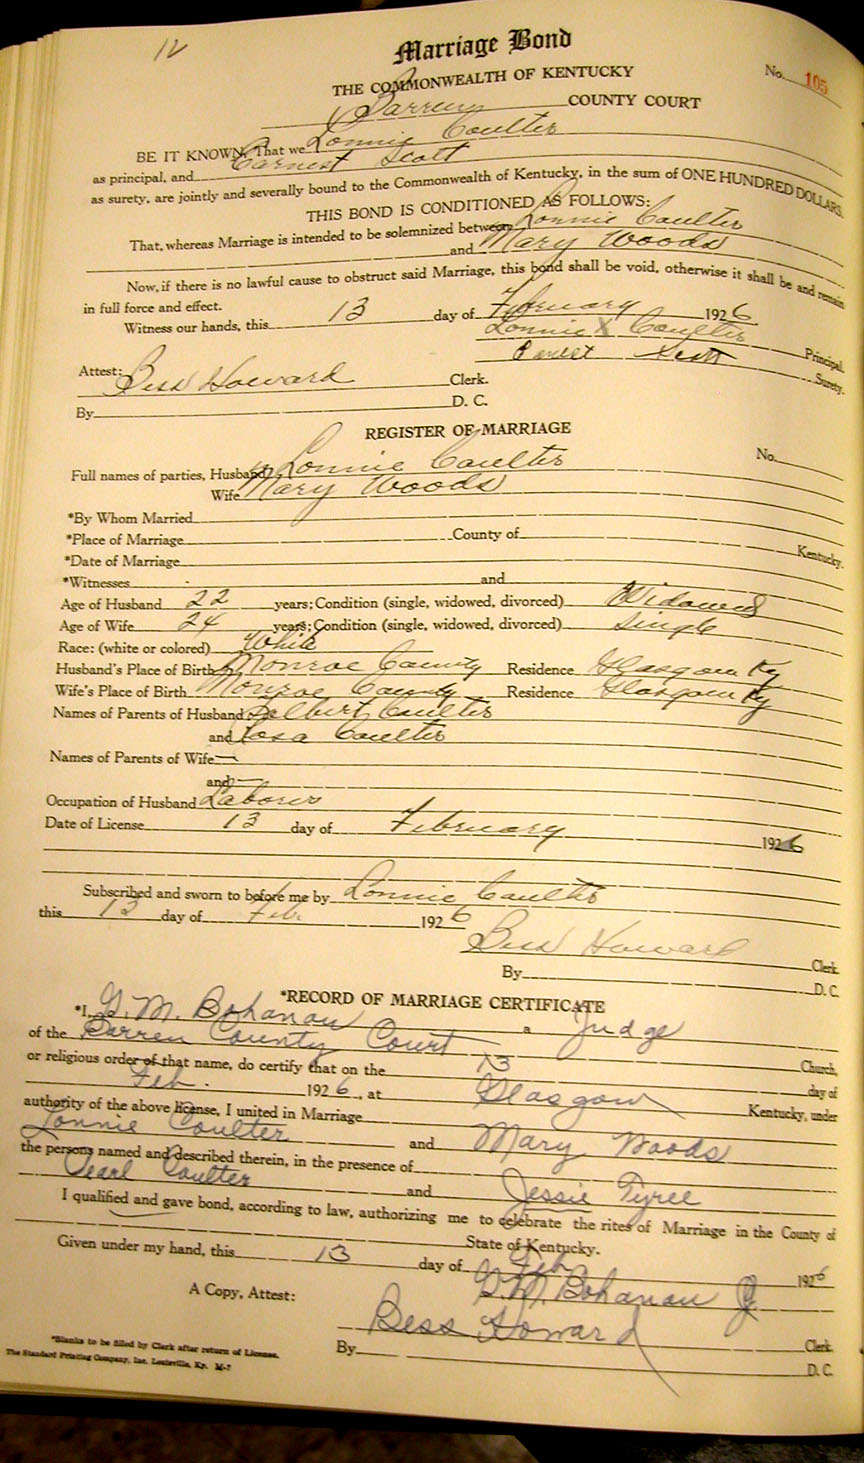 12
Marriage Bond
No. 105
THE COMMONWEALTH OF KENTUCKY
Barren COUNTY COURT
BE IT KNOWN, That we Lonnie Coulter
as principal, and Earnest Scott
as surety, are jointly and severally bound to the Commonwealth of Kentucky, in the sum of ONE HUNDRED DOLLARS.
THIS BOND IS CONDITIONED AS FOLLOWS:
That, whereas Marriage is intended to be solemnized between Lonnie Coulter
and Mary Woods
Now, if there is no lawful cause to obstruct said Marriage, this bond shall be void, otherwise it shall be and remain
in full force and effect.
Witness our hands, this 13 day of February 1926.
Lonnie X Coulter Principal.
Earnest Scott Surety.
Attest: Bess Howard Clerk.
By D. C.
REGISTER OF MARRIAGE
No.
Full names of parties, Husband Lonnie Coulter
Wife Mary Woods
*By Whom Married
*Place of Marriage County of Kentucky.
*Date of Marriage
*Witnesses and
Age of Husband 22 years; Condition (single, widowed, divorced) Widowed
Age of Wife 24 years; Condition (single, widowed, divorced) Single
Race: (white or colored) White
Husband's Place of Birth Monroe County Residence Glasgow Ky
Wife's Place of Birth Monroe County Residence Glasgow Ky
Names of Parents of Husband Delbert Coulter
and Rosa Coulter
Names of Parents of Wife —
and —
Occupation of Husband Laborer
Date of License 13 day of February 1926
Subscribed and sworn to before me by Lonnie Coulter
this 13 day of Feb. 1926
Bess Howard Clerk.
By D. C.
*RECORD OF MARRIAGE CERTIFICATE
*I, G. M. Bohanan a Judge
of the Barren County Court Church,
or religious order of that name, do certify that on the 13 day of
Feb. 1926, at Glasgow Kentucky, under
authority of the above license, I united in Marriage
Lonnie Coulter and Mary Woods
the persons named and described therein, in the presence of
Pearl Coulter and Jessie Tyree
I qualified and gave bond, according to law, authorizing me to celebrate the rites of Marriage in the County of
State of Kentucky.
Given under my hand, this 13 day of Feb. 1926
G. M. Bohanan J
A Copy, Attest: Bess Howard Clerk.
By D. C.
*Blanks to be filled by Clerk after return of License.
The Standard Printing Company, Inc. Louisville, Ky. M-7